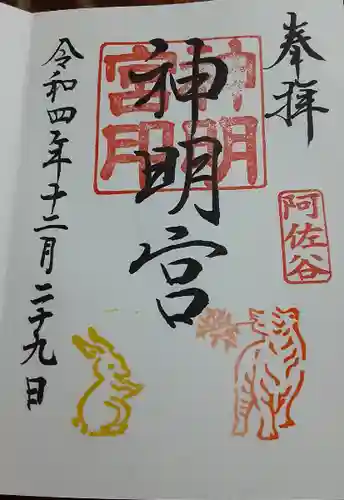 奉拝
阿佐谷
神明宮
神明
宮印
令和四年十二月二十九日